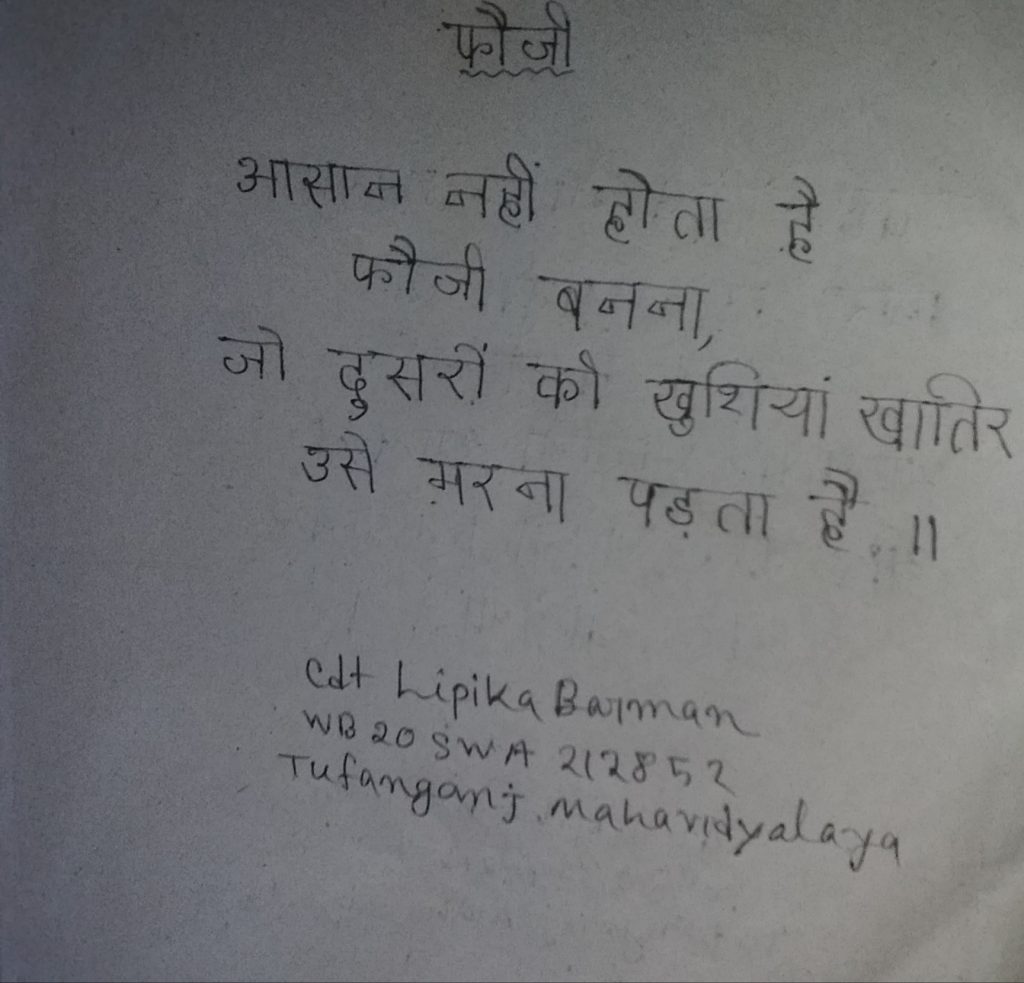 फौजी
आसान नहीं होता है
फौजी बनना,
जो दुसरों की खुशियां खातिर
उसे मरना पड़ता है ॥
Cdt Lipika Barman
WB 20 SWA 212852
Tufanganj Mahavidyalaya